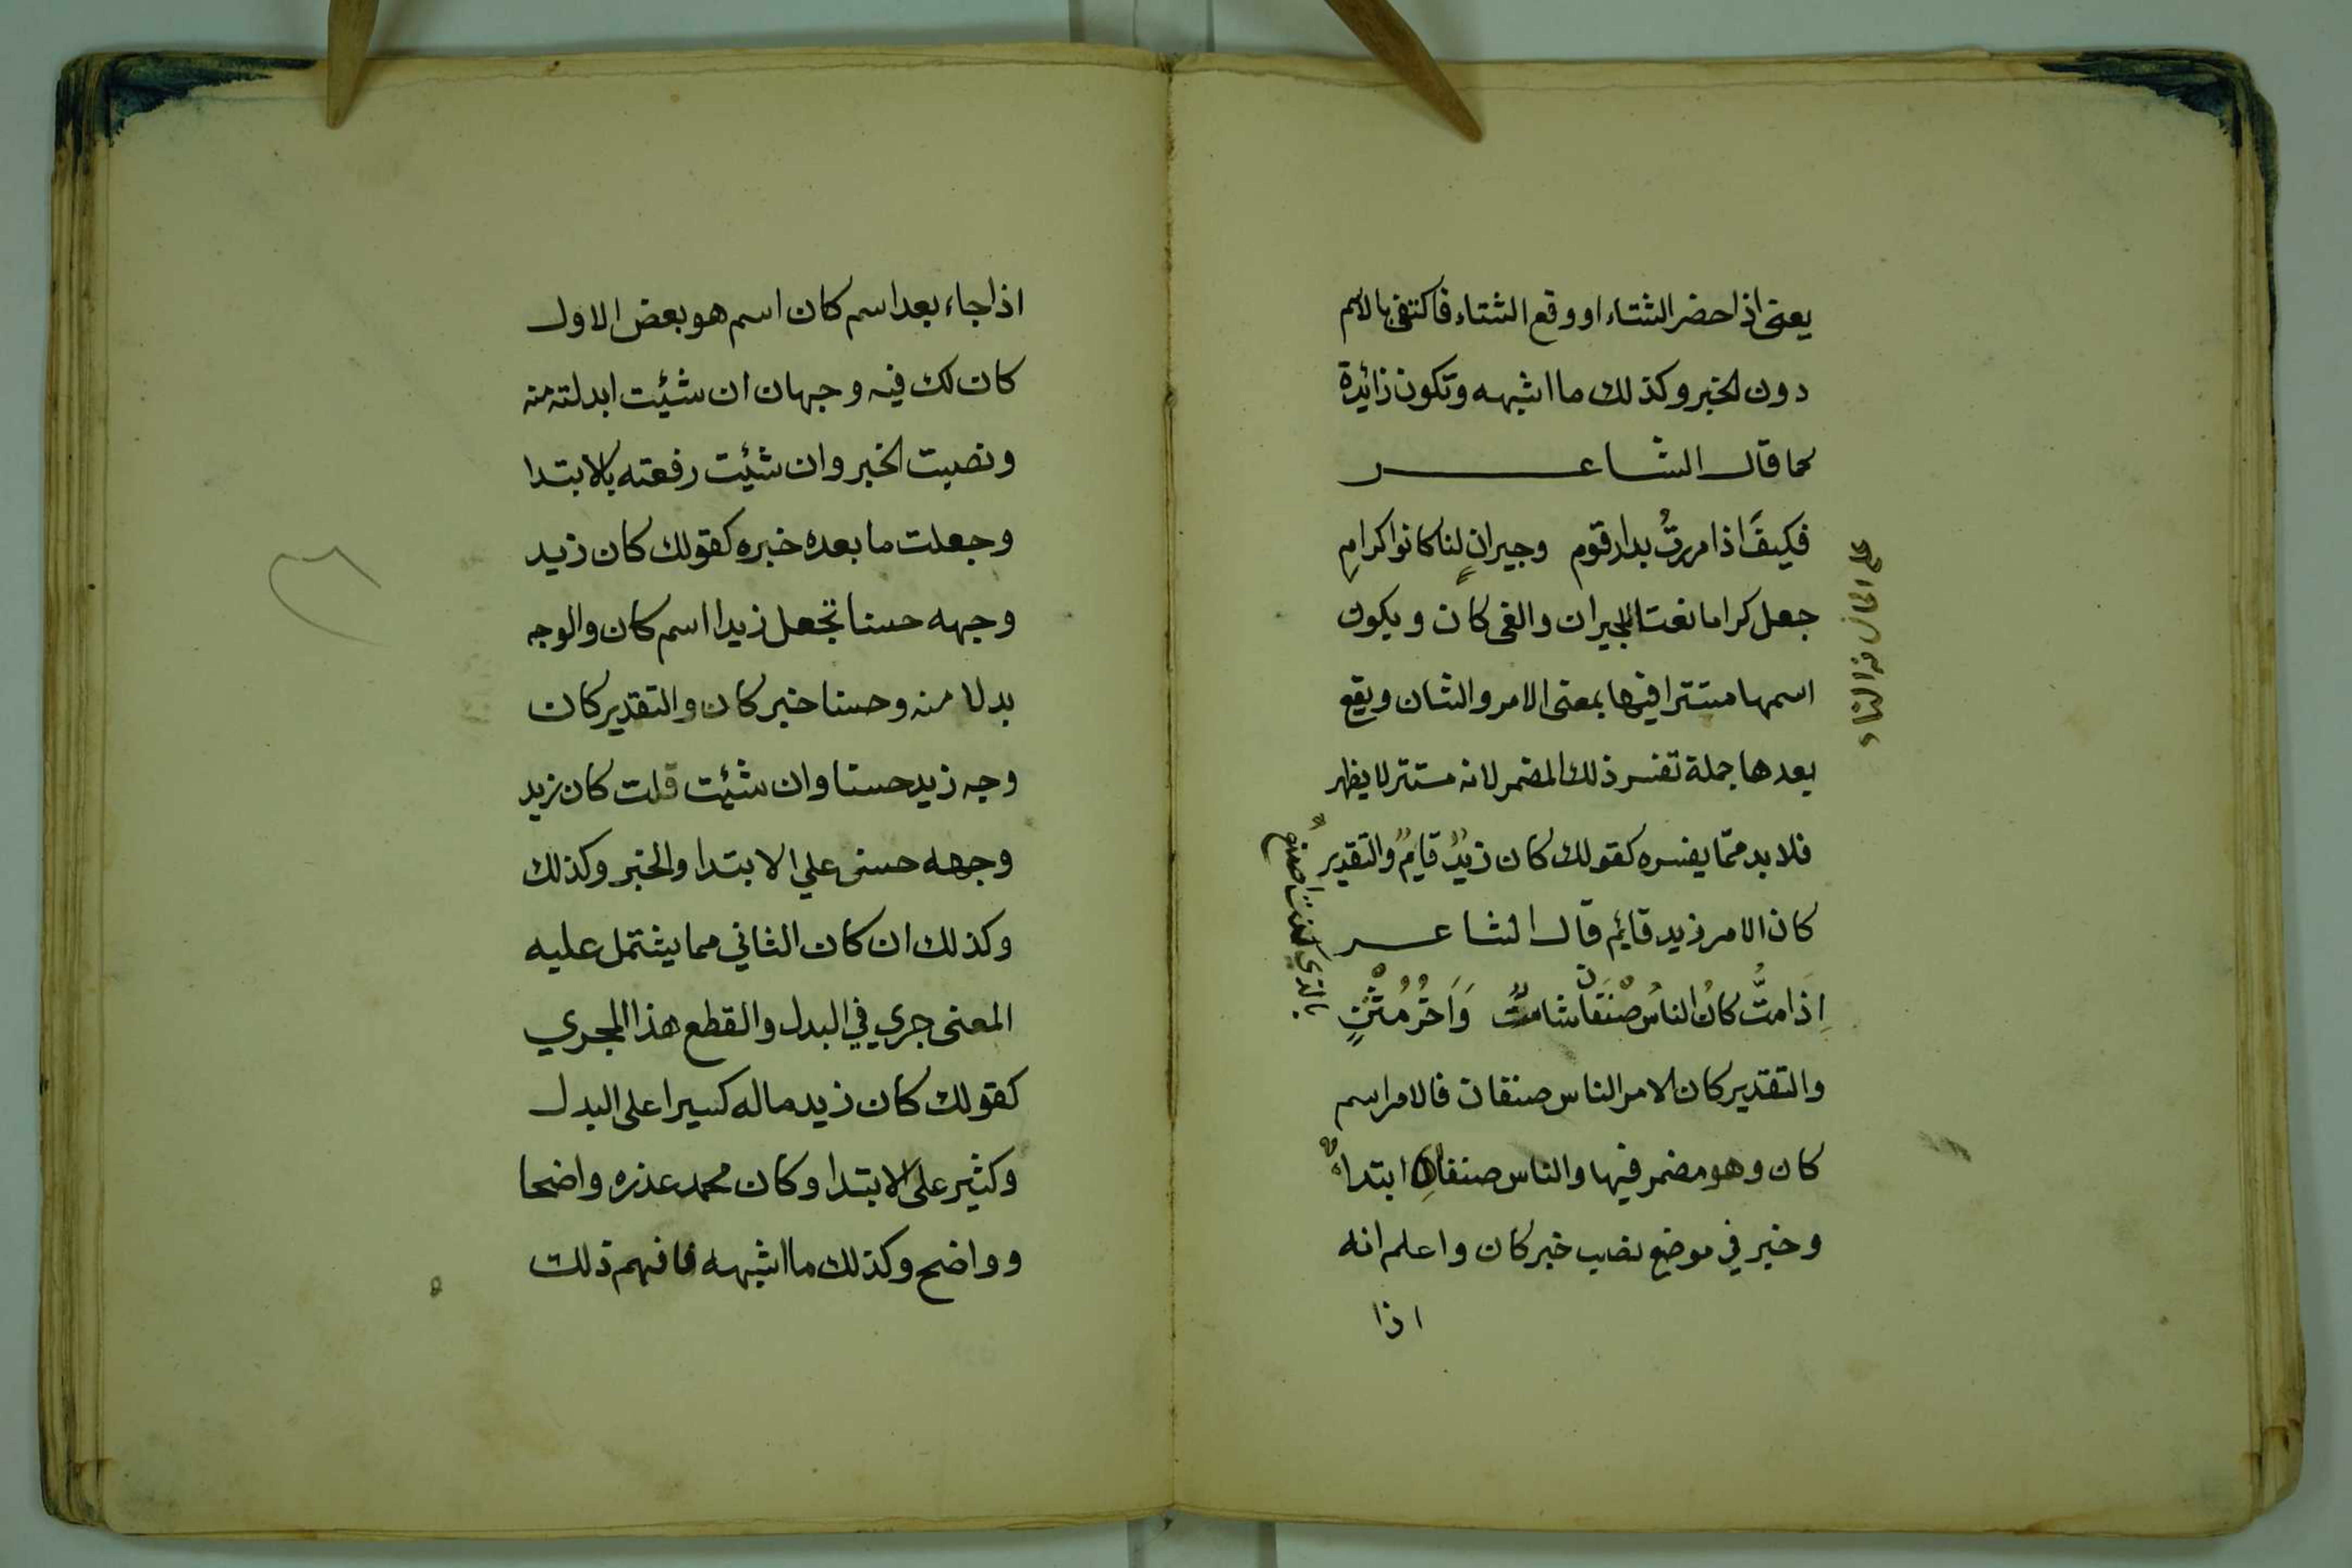 يعنى اذا حضر الشتاء او وقع الشتاء فاكتفى بالاسم
دون الخبر وكذلك ما اشبهه وتكون زائدة
كما قال الشاعر
فكيفَ اذا مررتُ بدار قوم وجيرانٍ لنا كانوا كرامِ
جعل كراما نعتا للجيران والغى كان ويكون
اسمها مستترا فيها بمعنى الامر والشان ويقع
بعدها جملة تفسر ذلك المضمر لانه مستتر لا يظهر
فلا بد ممّا يفسره كقولك كان زيدٌ قايمٌ والتقدير
كان الامر زيد قائم قال الشاعر
اِذَا متُّ كانُ الناسُ صنفان شامتٌ وَاَخرُ مُثنٍ
بالذي كنت اصنع
والتقدير كان الامر الناس صنفان فالامر اسم
كان وهو مضمر فيها والناس صنفانِ ابتداءٌ
وخبر في موضع نصب خبر كان واعلم انه
اذا
اذا جاء بعد اسم كان اسم هو بعض الاول
كان لك فيه وجهان ان شئيت ابدلته منه
ونصبت الخبر وان شئيت رفعته بالابتدا
وجعلت ما بعده خبره كقولك كان زيد
وجهه حسنا تجعل زيدا اسم كان والوجه
بدلا منه وحسنا خبر كان والتقدير كان
وجه زيد حسنا وان شئيت قلت كان زيد
وجهه حسن علي الابتدا والخبر وكذلك
وكذلك ان كان الثاني مما يشتمل عليه
المعنى جري في البدل والقطع هذا المجري
كقولك كان زيد ماله كسيرا على البدل
وكثير على الابتدا وكان محمد عذره واضحا
وواضح وكذلك ما اشبهه فافهم ذلك